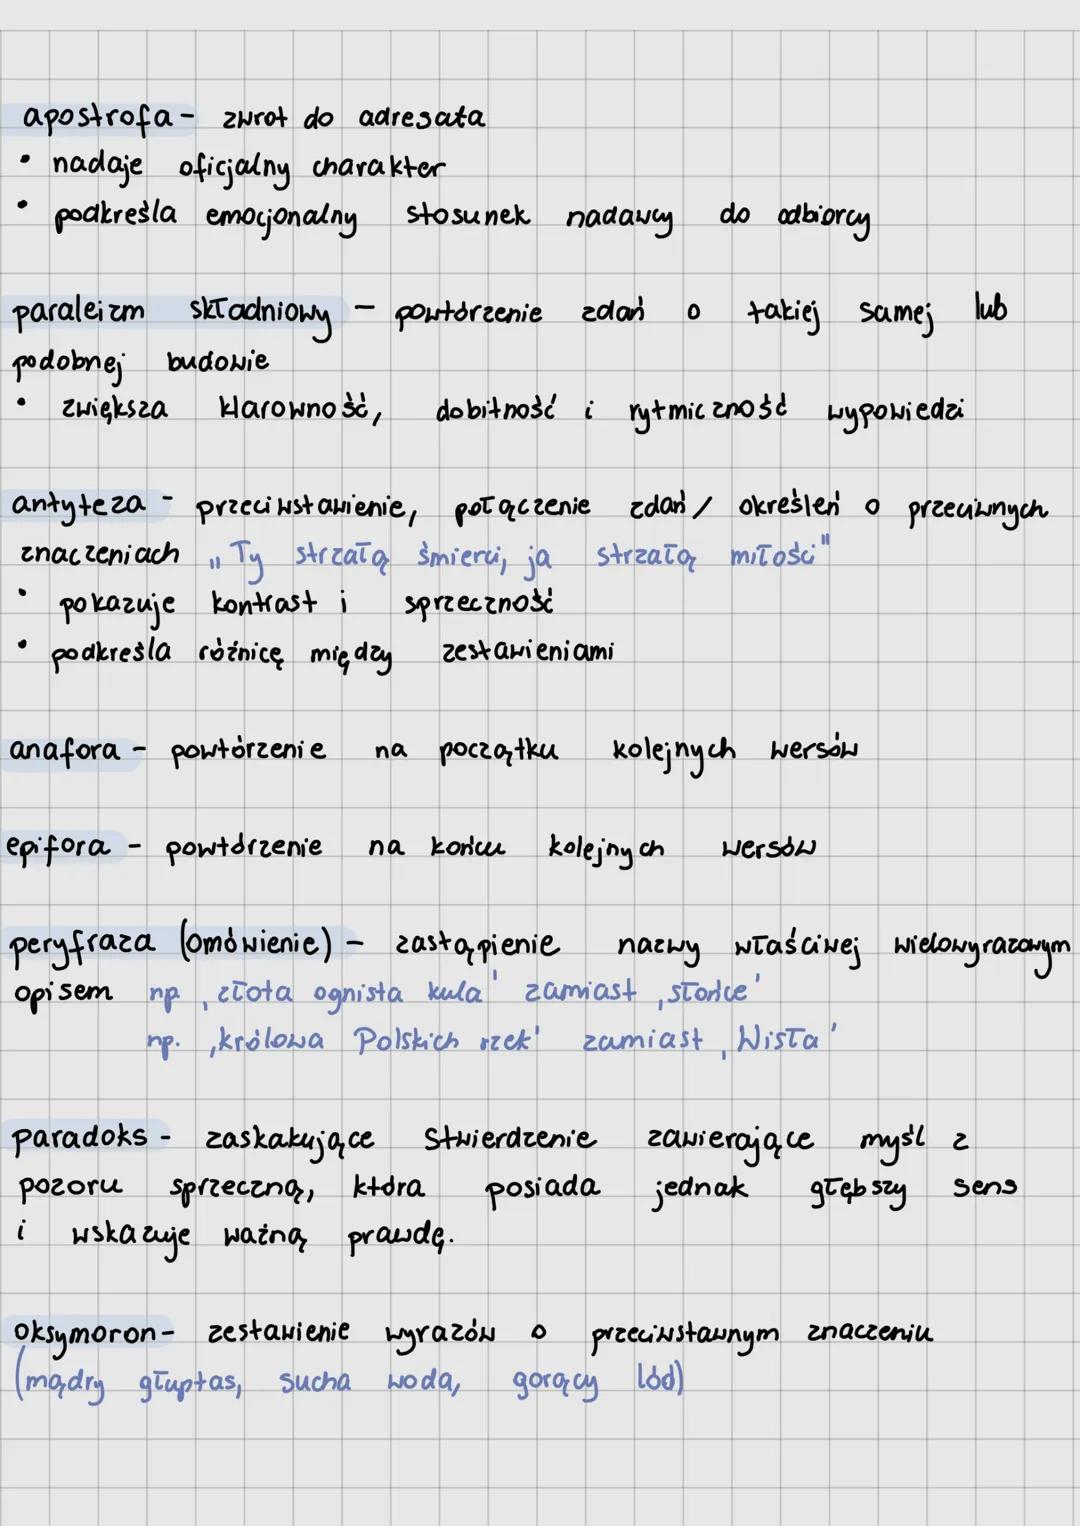 apostrofa - zwrot do adresata
• nadaje oficjalny charakter
• podkreśla emocjonalny stosunek nadawcy do odbiorcy
paraleizm składniowy - powtórzenie zdań o takiej samej lub
podobnej budowie
• zwiększa klarowność, dobitność i rytmiczność wypowiedzi
antyteza - przeciwstawienie, połączenie zdań / określeń o przeciwnych
znaczeniach „Ty strzałą śmierci, ja strzałą miłości"
• pokazuje kontrast i sprzeczność
• podkreśla różnicę między zestawieniami
anafora - powtórzenie na początku kolejnych wersów
epifora - powtórzenie na końcu kolejnych wersów
peryfraza (omówienie) - zastąpienie nazwy właściwej wielowyrazowym
opisem np. ‚złota ognista kula' zamiast ‚słońce'
np. ‚królowa Polskich rzek' zamiast ‚Wisła'
paradoks - zaskakujące stwierdzenie zawierające myśl z
pozoru sprzeczną, która posiada jednak głębszy sens
i wskazuje ważną prawdę.
oksymoron - zestawienie wyrazów o przeciwstawnym znaczeniu
(mądry głuptas, sucha woda, gorący lód)